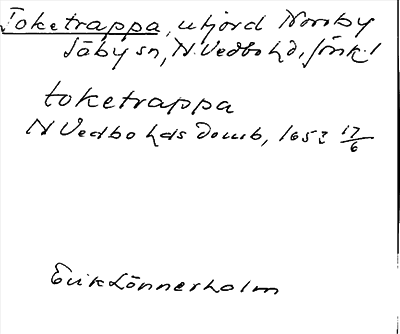 Toketrappa, utjord Norrby
Säby sn, N. Vedbo hd, Jönk. l
toketrappa
N Vedbo hds domb, 1652 17/6
Erik Lönnerholm